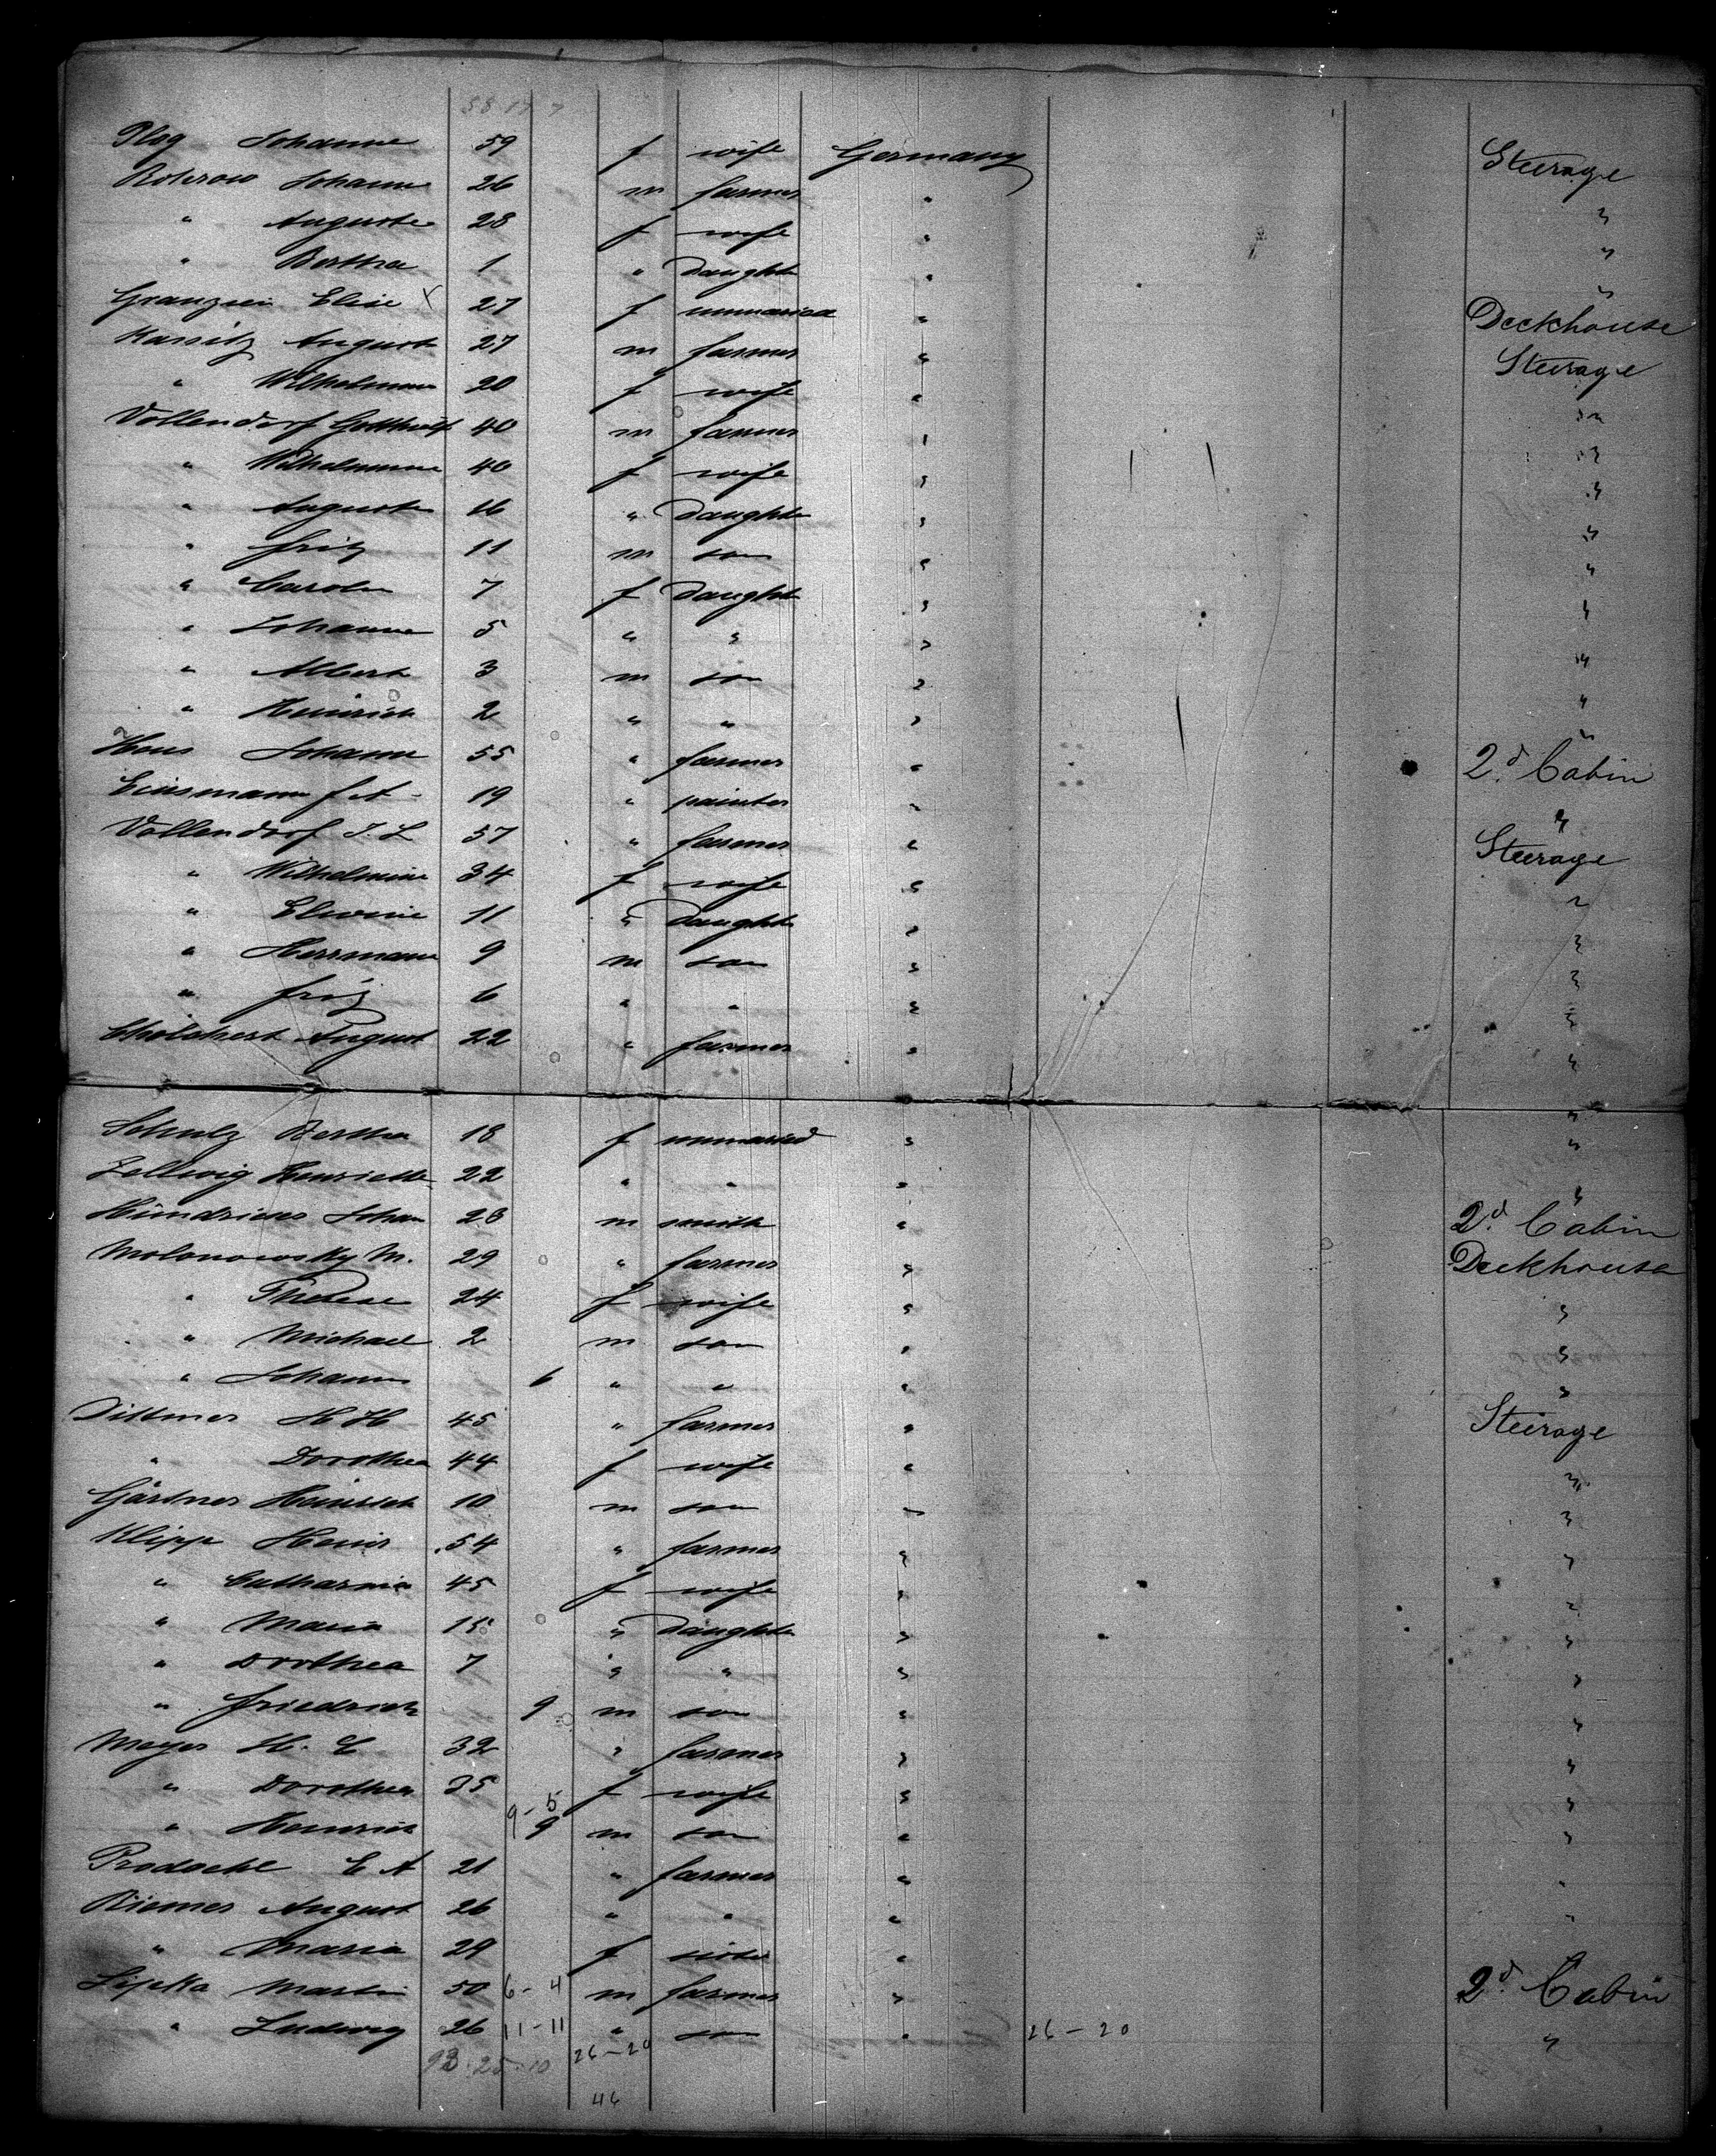 58 17 7
Plog Johanne 59 f wife Germany Steerage
Rohrow Johann 26 m farmer " "
" Auguste 28 f wife " "
" Bertha 1 " daught " "
Elise x 27 f unmaried " Deckhouse
August 27 m farmer " Steerage
" Wilhelmine 20 f wife " "
Vollendorf Gotthilf 40 m farmer " "
" Wilhelmine 40 f wife " "
" Auguste 16 " daught " "
" Fritz 11 m son " "
" Carolin 7 f daught " "
" Johanne 5 " " " "
" Albert 3 m son " "
" Heinrich 2 " " " "
Johann 55 " farmer " 2d. Cabin
19 " painter " "
Vollendorf J. L 57 " farmer " Steerage
" Wilhelmine 34 f wife " "
" Elwine 11 " daught " "
" Herrmann 9 m son " "
" Fritz 6 " " " "
August 22 " farmer " "
Schulz Bertha 18 f unmaried " "
Zellwig Henriette 22 " " " "
Johan 28 m smith " 2d. Cabin
Molonowsky M. 29 " farmer " Deckhouse
" Therese 24 f wife " "
" Michael 2 m son " "
" Johann 6 " " " "
Dittmer H H 45 " farmer " Steerage
" Dorothea 44 f wife " "
Gärtner Heinrich 10 m son " "
Klipp Heinr 54 " farmer " "
" Catharina 45 f wife " "
" Maria 15 " daught " "
" Dorthea 7 " " " "
" Friedrich 9 m son " "
Meyer H. C 32 " farmer " "
" Dorothea 35 f wife " "
9-5
" Heinrich 9 m son " "
E A 21 " farmer " "
Riemer August 26 " " " "
" Maria 29 f " "
Lipska Martin 50 6-4 m farmer " 2d. Cabin
" Ludwig 26 11-11 " son " 26-20 "
93 25 10 26-20
46